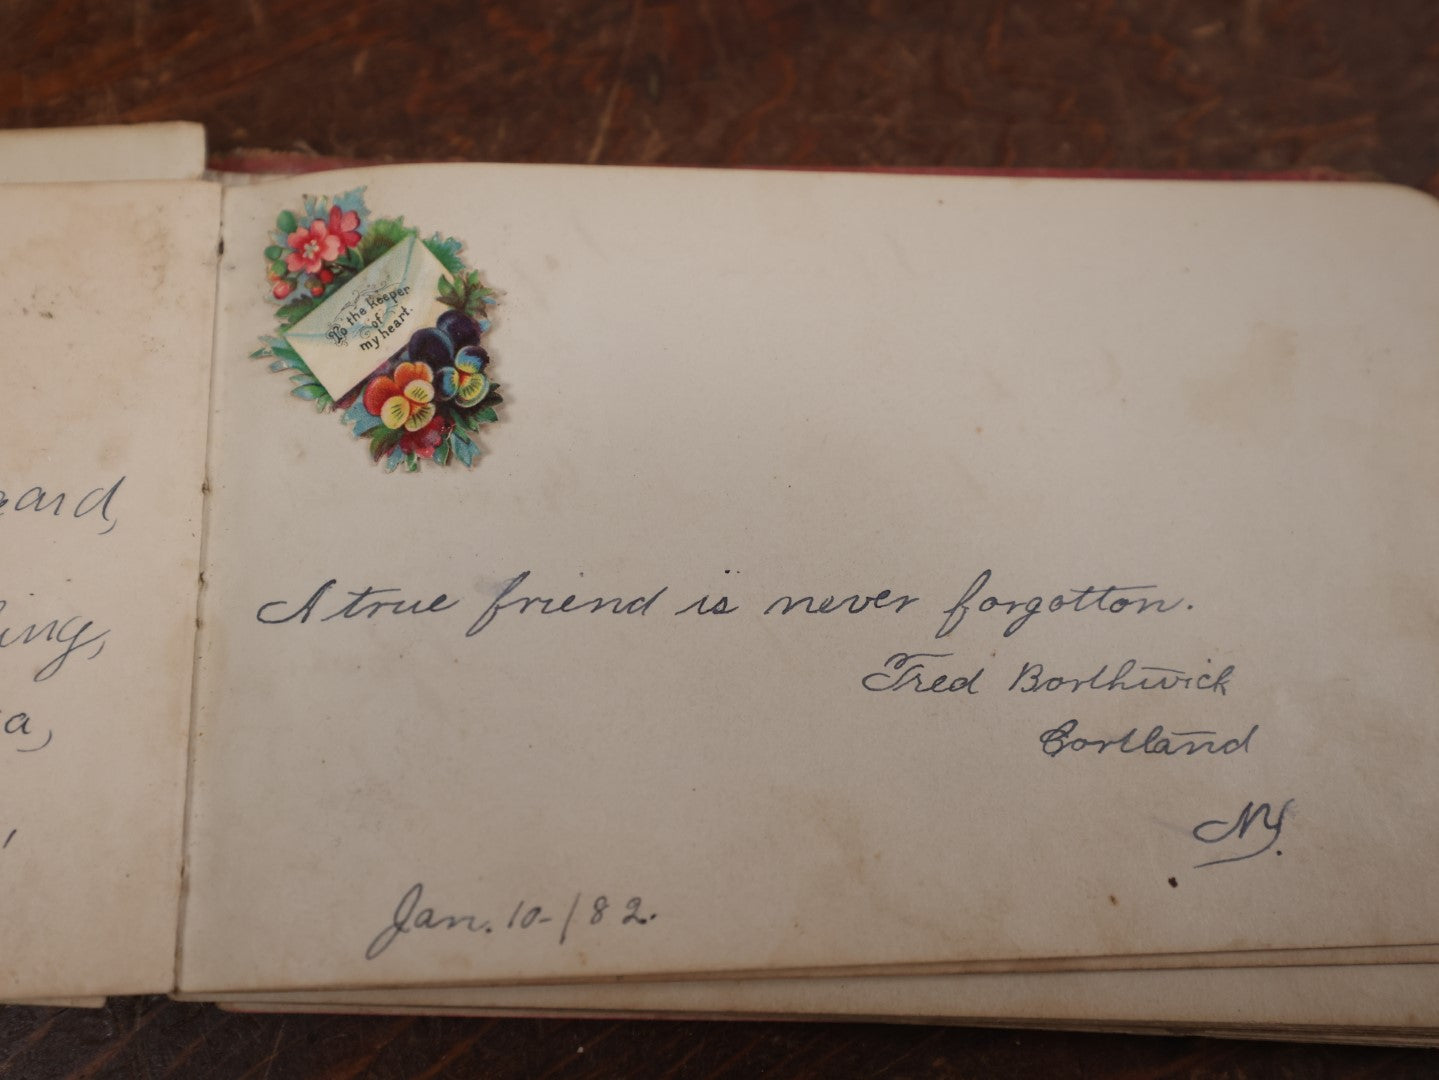 To the Keeper
of
my heart.
A true friend is never forgotton.
Fred Borthwick
Cortland
NY.
Jan. 10-/82.